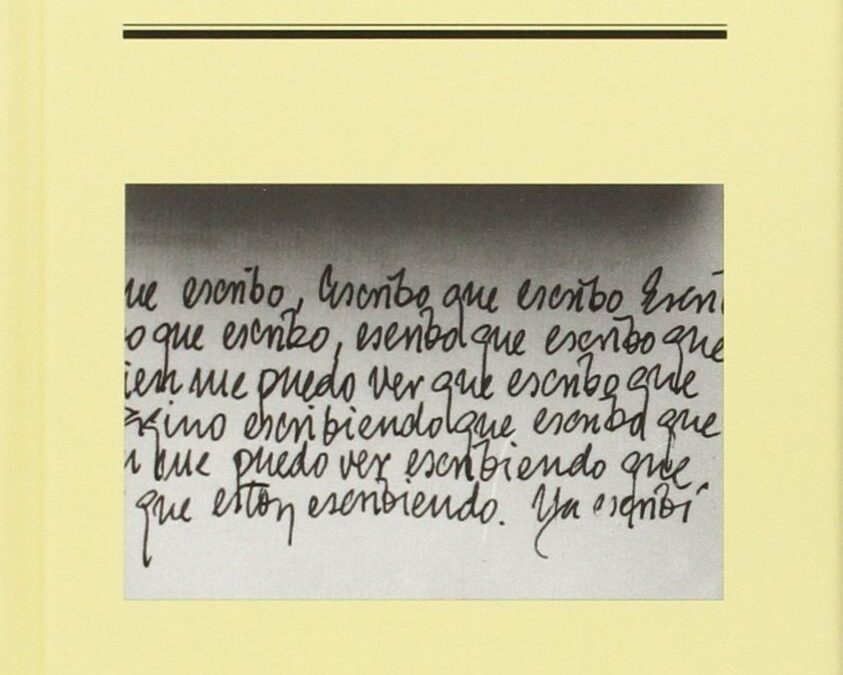 ue escribo, Escribo que escribo Escri
o que escribo, escribo que escribo que
ien me puedo ver que escribo que
gino escribiendo que escribo que
n me puedo ver escribiendo que
que estoy escribiendo. Ya escribí